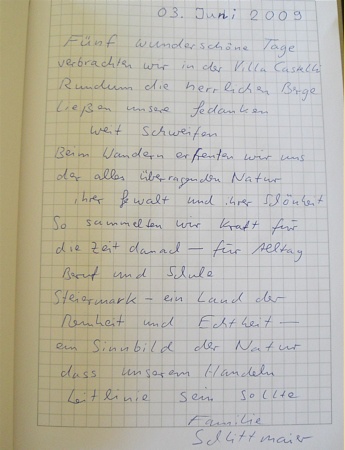 03. Juni 2009
Fünf wunderschöne Tage
verbrachten wir in der Villa Castelli
Rundum die herrlichen Berge
ließen unsere Gedanken
weit schweifen
Beim Wandern erfreuten wir uns
der alles überragenden Natur
ihrer Gewalt und ihrer Schönheit
So sammelten wir Kraft für
die Zeit danach – für Alltag
Beruf und Schule
Steiermark – ein Land der
Reinheit und Echtheit –
ein Sinnbild der Natur
dass unserem Handeln
Leitlinie sein sollte
Familie
Schlittmaier